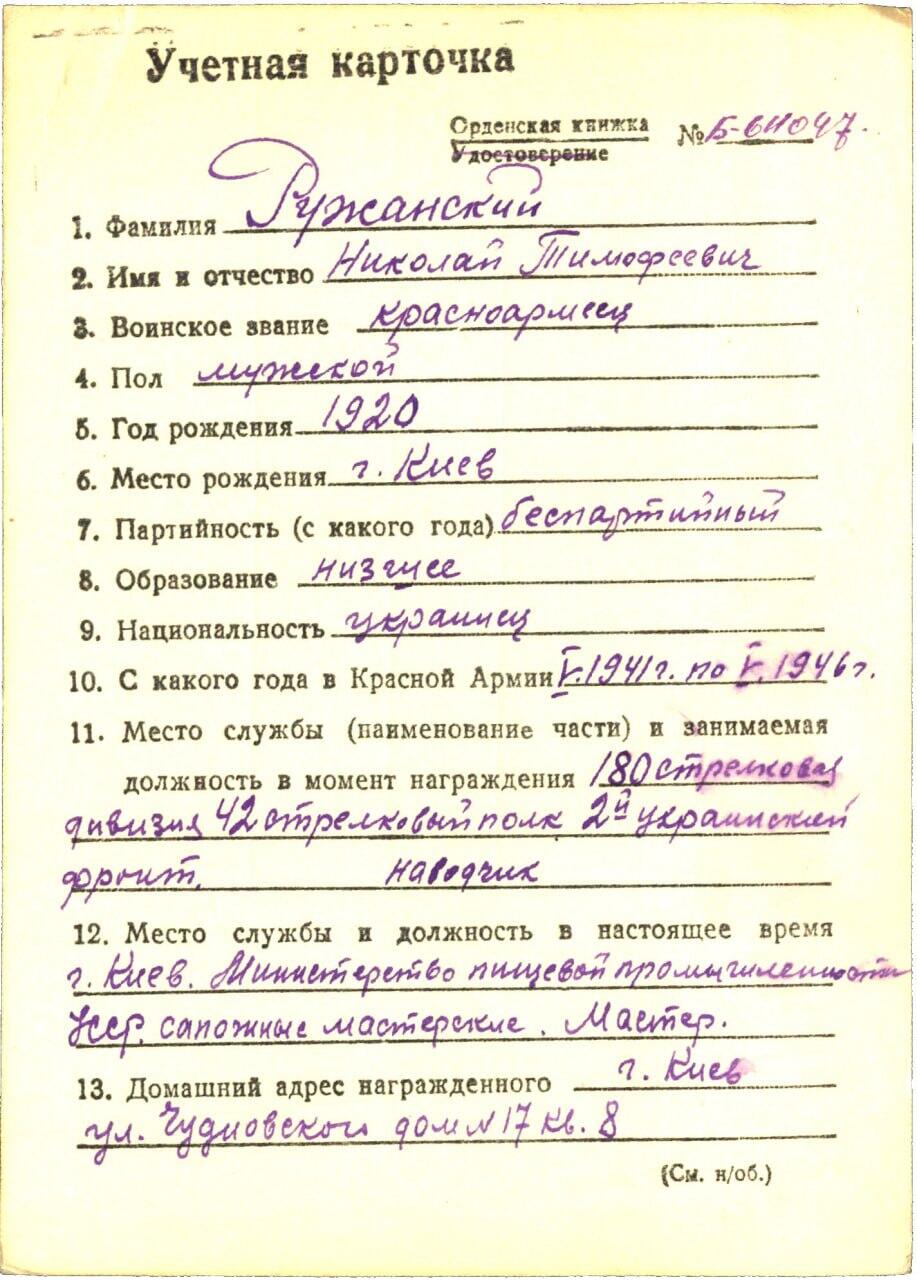 Учетная карточка
Орденская книжка
Удостоверение
№ Б-611047.
1. Фамилия Ружанский
2. Имя и отчество Николай Тимофеевич
3. Воинское звание красноармеец
4. Пол мужской
5. Год рождения 1920
6. Место рождения г. Киев
7. Партийность (с какого года) беспартийный
8. Образование низшее
9. Национальность украинец
10. С какого года в Красной Армии V.1941г. по V.1946г.
11. Место службы (наименование части) и занимаемая
должность в момент награждения 180 стрелковая
дивизия 42 стрелковый полк 2й украинский
фронт. наводчик
12. Место службы и должность в настоящее время
г. Киев. Министерство пищевой промышленности
УССР. сапожные мастерские. Мастер.
13. Домашний адрес награжденного г. Киев
ул. Чудновского дом N 17 кв. 8
(См. н/об.)